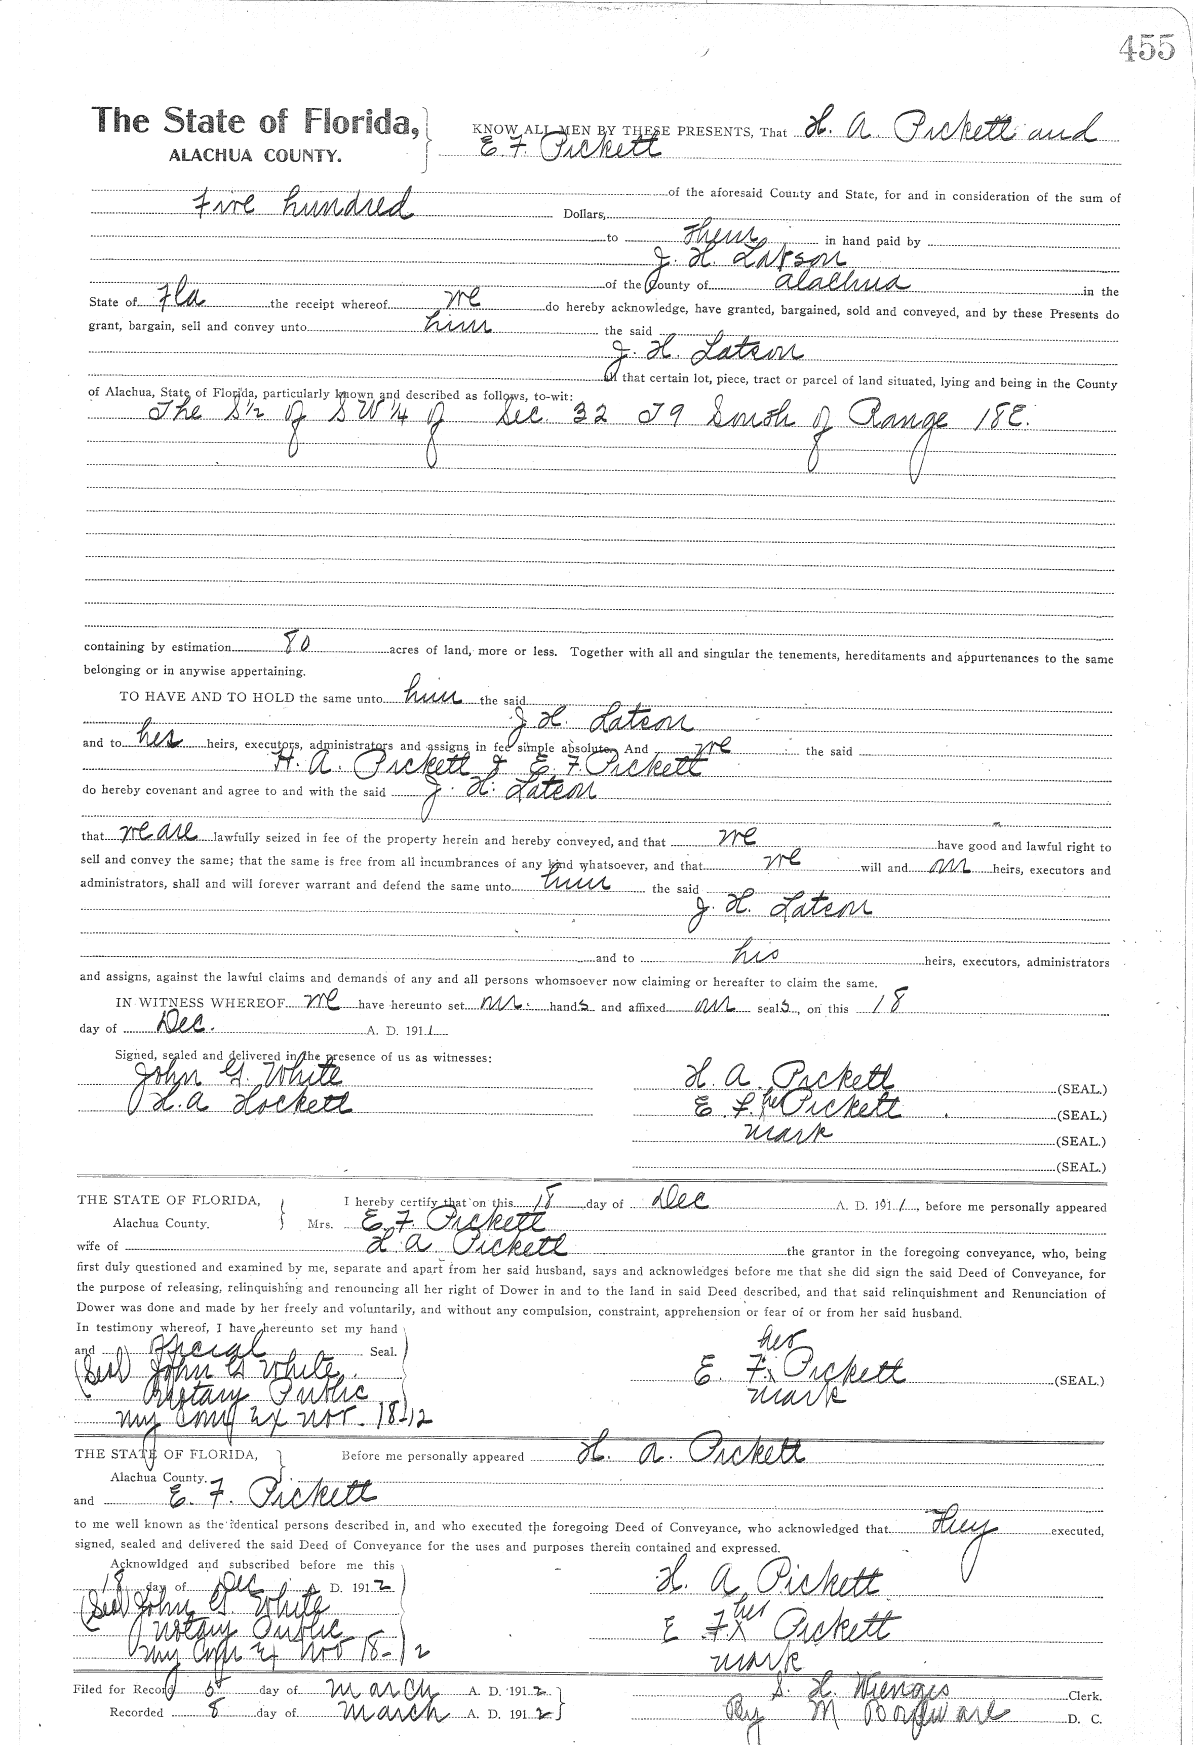 455
The State of Florida,
ALACHUA COUNTY.
KNOW ALL MEN BY THESE PRESENTS, That H. A. Pickett and
E. F. Pickett
of the aforesaid County and State, for and in consideration of the sum of
Five hundred Dollars,
to them in hand paid by
J. H. Latson
of the County of Alachua in the
State of Fla the receipt whereof we do hereby acknowledge, have granted, bargained, sold and conveyed, and by these Presents do
grant, bargain, sell and convey unto him the said
J. H. Latson
All that certain lot, piece, tract or parcel of land situated, lying and being in the County
of Alachua, State of Florida, particularly known and described as follows, to-wit:
The S 1/2 of S W 1/4 of Sec. 32 T 9 South of Range 18 E.
containing by estimation 80 acres of land, more or less. Together with all and singular the tenements, hereditaments and appurtenances to the same
belonging or in anywise appertaining.
TO HAVE AND TO HOLD the same unto him the said
J H. Latson
and to his heirs, executors, administrators and assigns in fee simple absolute. And we the said
H. A. Pickett & E. F. Pickett
do hereby covenant and agree to and with the said J. H. Latson
that we are lawfully seized in fee of the property herein and hereby conveyed, and that we have good and lawful right to
sell and convey the same; that the same is free from all incumbrances of any kind whatsoever, and that we will and our heirs, executors and
administrators, shall and will forever warrant and defend the same unto him the said
J. H. Latson
and to his heirs, executors, administrators
and assigns, against the lawful claims and demands of any and all persons whomsoever now claiming or hereafter to claim the same.
IN WITNESS WHEREOF we have hereunto set our hands and affixed our seals, on this 18
day of Dec. A. D. 1911
Signed, sealed and delivered in the presence of us as witnesses:
John G. White
H. A. Pickett (SEAL.)
H. A Hockett
E. F. her Pickett (SEAL.)
mark (SEAL.)
(SEAL.)
THE STATE OF FLORIDA,
Alachua County.
I hereby certify that on this 18 day of Dec A. D. 1911, before me personally appeared
Mrs. E. F. Pickett
wife of H A Pickett the grantor in the foregoing conveyance, who, being
first duly questioned and examined by me, separate and apart from her said husband, says and acknowledges before me that she did sign the said Deed of Conveyance, for
the purpose of releasing, relinquishing and renouncing all her right of Dower in and to the land in said Deed described, and that said relinquishment and Renunciation of
Dower was done and made by her freely and voluntarily, and without any compulsion, constraint, apprehension or fear of or from her said husband.
In testimony whereof, I have hereunto set my hand
and official Seal.
her
(Seal) John G White
E. F. x Pickett (SEAL.)
Notary Public
mark
my Com Ex Nov. 18-12
THE STATE OF FLORIDA,
Alachua County.
Before me personally appeared H. A. Pickett
and E. F. Pickett
to me well known as the identical persons described in, and who executed the foregoing Deed of Conveyance, who acknowledged that they executed,
signed, sealed and delivered the said Deed of Conveyance for the uses and purposes therein contained and expressed.
Acknowldged and subscribed before me this
18 day of Dec A. D. 1912
H. A. Pickett
(Seal) John G White
her
E F. x Pickett
Notary Public
mark
my Com Ex Nov 18-12
Filed for Record day of March A. D. 1912
S. H. Wienges Clerk.
Recorded 8 day of March A. D. 1912
By M D. C.